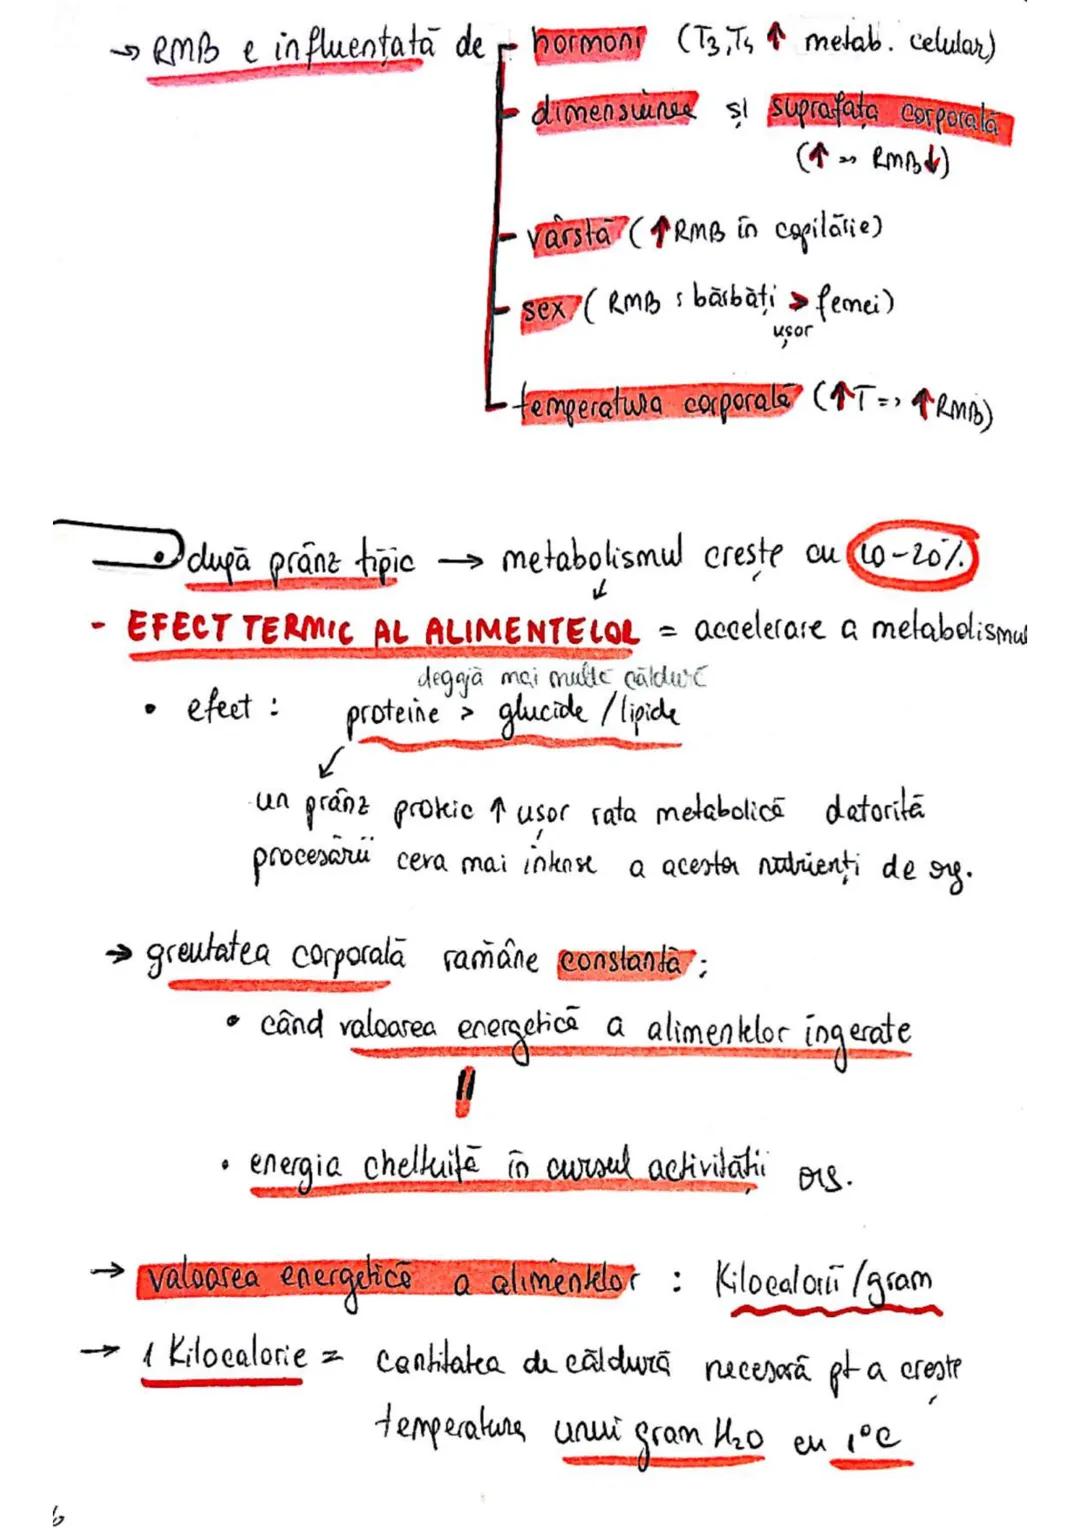 → RMB e influențată de - hormoni (T3,T4 ↑ metab. celular)
- dimensiunea și suprafața corporală
(↑ => RMB↓)
- vârstă (↑RMB în copilărie)
- sex (RMB : bărbați > femei)
ușor
- temperatura corporală (↑T => ↑RMB)
• după prânz tipic → metabolismul crește cu 10-20%
- EFECT TERMIC AL ALIMENTELOR = accelerare a metabolismul
degajă mai multă căldură
• efect : proteine > glucide / lipide
un prânz proteic ↑ ușor rata metabolică datorită
procesării ceva mai intense a acestor nutrienți de org.
→ greutatea corporală rămâne constantă :
• când valoarea energetică a alimentelor ingerate
=
• energia cheltuită în cursul activității org.
→ valoarea energetică a alimentelor : Kilocalorii /gram
→ 1 Kilocalorie = cantitatea de căldură necesară pt a crește
temperatura unui gram H2O cu 1°C
6